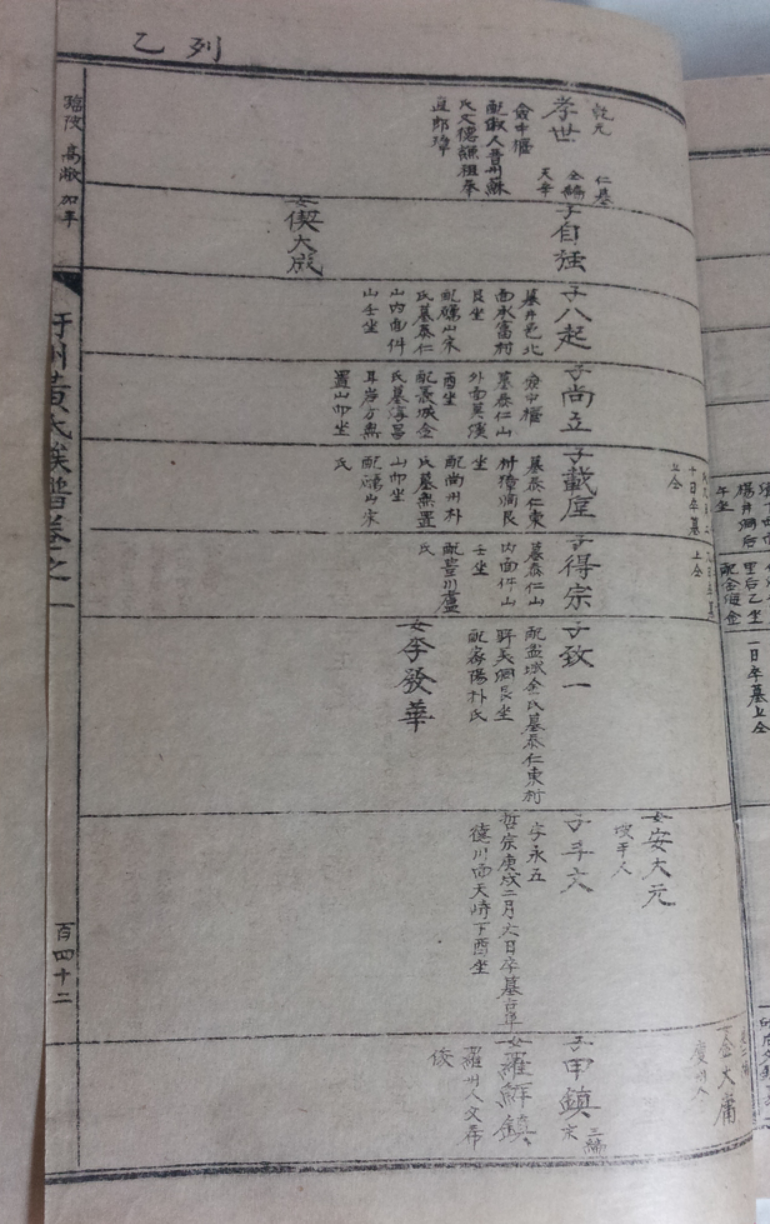 乙列
乾元
仁墓
孝世
全編
天字
僉中樞
配淑人晋州蘇
氏父德謙祖奉
直郎瑋
子自强
女偰大成
子八起
墓井邑北
面永富村
艮坐
配礪山宋
氏墓泰仁
山內面件
山壬坐
子尚立
僉中樞
墓泰仁山
外面莫溪
酉坐
配義城金
氏墓淳昌
耳岩方無
置山卯坐
子載厚
墓泰仁東
村獐洞艮
坐
配尚州朴
氏墓無置
山卯坐
配礪山宋
氏
十日卒墓
上仝
子得宗
墓泰仁山
內面件山
壬坐
配豊川盧
氏
上仝
子致一
配盆城金氏墓泰仁東村
洞艮坐
配密陽朴氏
女李發華
女安大元
咬平人
子斗文
字永五
哲宗庚戌二月六日卒墓古阜
德川面天峙下酉坐
金大甫
慶州人
子甲鎮
三編
宋
女羅鮮鎮
羅州人父希
俊
臨陂 高敞 加平
紆州黃氏族譜卷之一
百四十二
楊井洞后
午坐
里后乙坐
配金海金
一日卒墓上仝